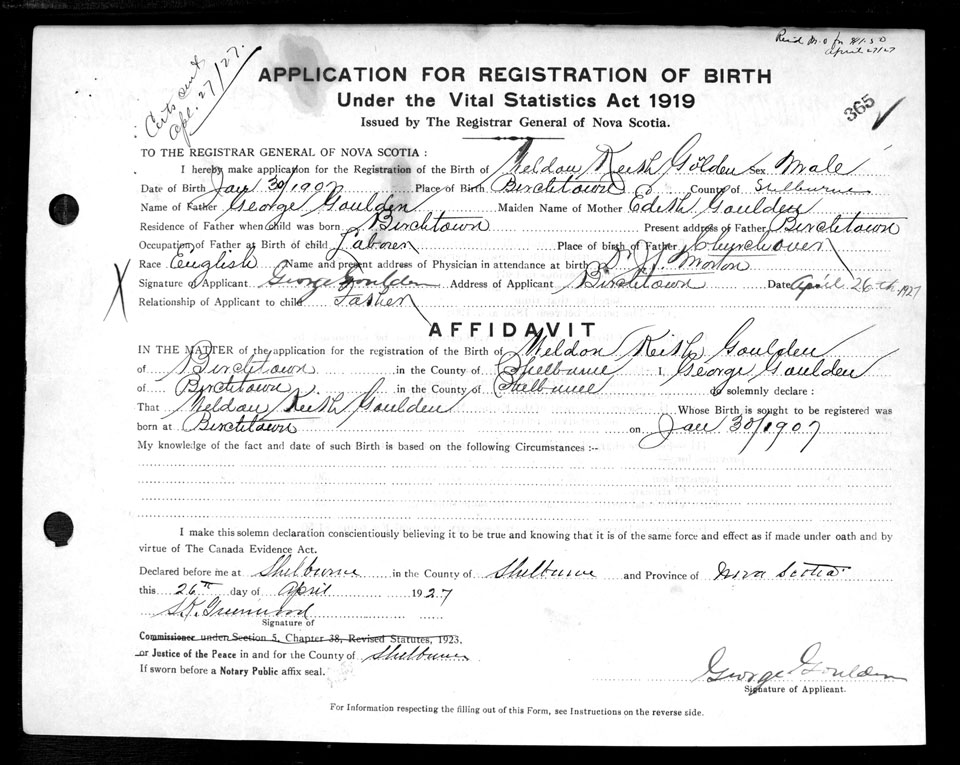 Rec'd M.O for $1.50
April 27/27
Certs sent
Apl. 27/27.
APPLICATION FOR REGISTRATION OF BIRTH
Under the Vital Statistics Act 1919
Issued by The Registrar General of Nova Scotia.
365
TO THE REGISTRAR GENERAL OF NOVA SCOTIA :
I hereby make application for the Registration of the Birth of Weldon Keith Golden Sex Male
Date of Birth Jan 30/1907 Place of Birth Birchtown County of Shelburne
Name of Father George Goulden Maiden Name of Mother Edith Goulden
Residence of Father when child was born Birchtown Present address of Father Birchtown
Occupation of Father at Birth of child Laborer Place of birth of Father Churchover
Race English Name and present address of Physician in attendance at birth Dr J. Morton
Signature of Applicant George Goulden Address of Applicant Birchtown Date April 26th 1927
Relationship of Applicant to child Father
AFFIDAVIT
IN THE MATTER of the application for the registration of the Birth of Weldon Keith Goulden
of Birchtown in the County of Shelburne I, George Goulden
of Birchtown in the County of Shelburne do solemnly declare :
That Weldon Keith Goulden Whose Birth is sought to be registered was
born at Birchtown on Jan 30/1907
My knowledge of the fact and date of such Birth is based on the following Circumstances :--
I make this solemn declaration conscientiously believing it to be true and knowing that it is of the same force and effect as if made under oath and by
virtue of The Canada Evidence Act.
Declared before me at Shelburne in the County of Shelburne and Province of Nova Scotia
this 26th day of April 1927
Signature of
Commissioner under Section 5, Chapter 38, Revised Statutes, 1923.
or Justice of the Peace in and for the County of Shelburne
If sworn before a Notary Public affix seal.
George Goulden
Signature of Applicant.
For Information respecting the filling out of this Form, see Instructions on the reverse side.